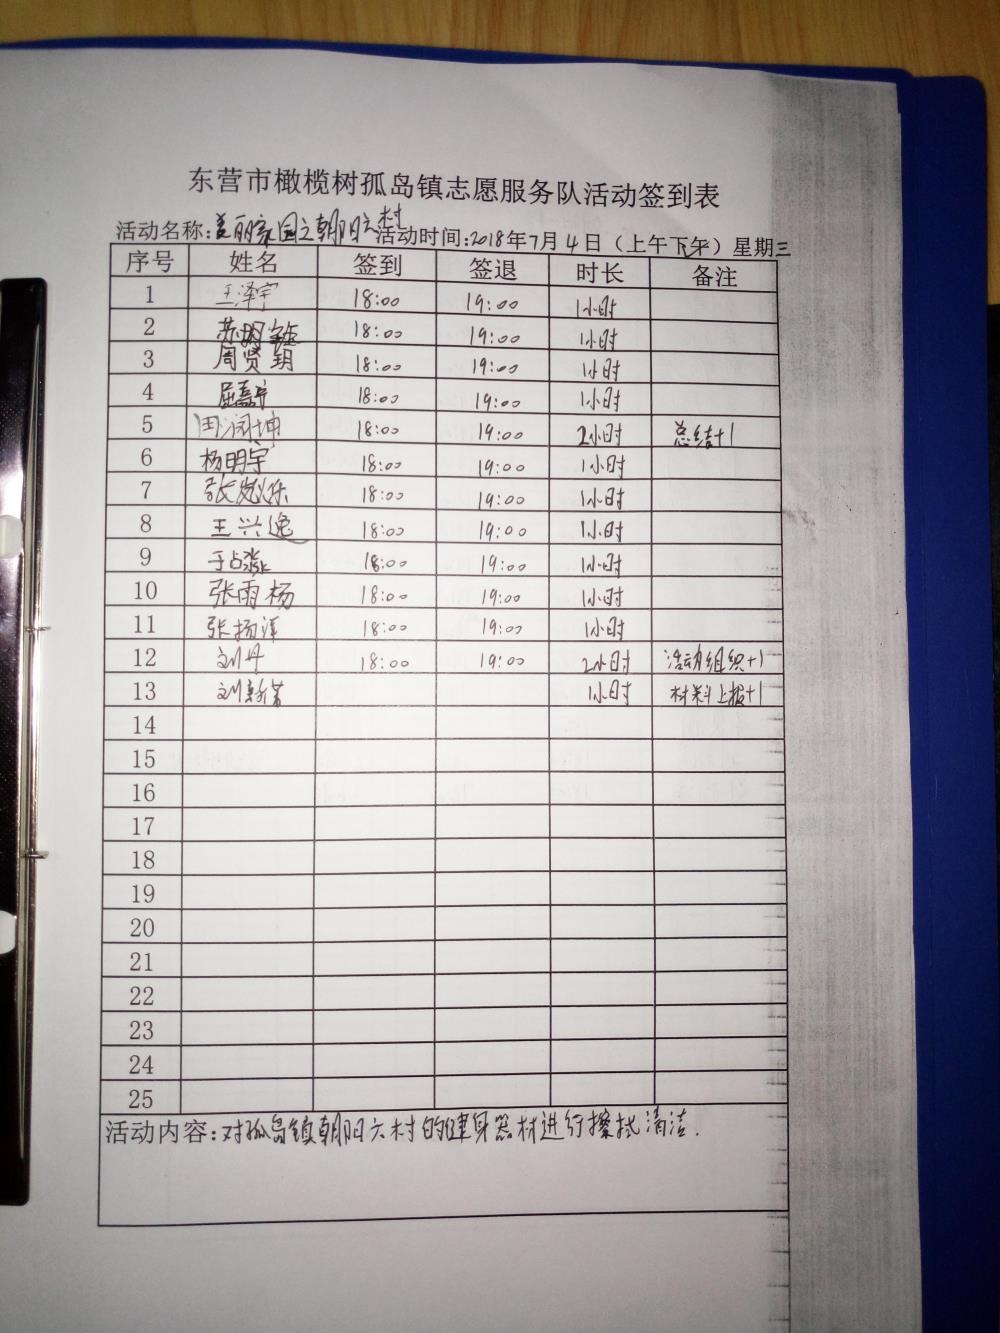 东营市橄榄树孤岛镇志愿服务队活动签到表
活动名称:美丽家园之朝阳六村 活动时间:2018年7月4日（上午下午）星期三
序号 姓名 签到 签退 时长 备注
1 王泽宇 18:00 19:00 1小时
2 苏明 18:00 19:00 1小时
3 周贤钥 18:00 19:00 1小时
4 屈 18:00 19:00 1小时
5 田润坤 18:00 19:00 2小时 总结+1
6 杨明宇 18:00 19:00 1小时
7 张 乐 18:00 19:00 1小时
8 王兴逸 18:00 19:00 1小时
9 于占淼 18:00 19:00 1小时
10 张雨杨 18:00 19:00 1小时
11 张扬洋 18:00 19:00 1小时
12 刘丹 18:00 19:00 2小时 活动组织+1
13 刘新 1小时 材料上报+1
14
15
16
17
18
19
20
21
22
23
24
25
活动内容:对孤岛镇朝阳六村的健身器材进行擦拭清洁.